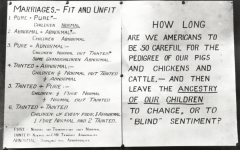 MARRIAGES,- FIT AND UNFIT
1. PURE + PURE:-
CHILDREN NORMAL
2. ABNORMAL + ABNORMAL:-
CHILDREN ABNORMAL
3. PURE + ABNORMAL:-
CHILDREN NORMAL BUT TAINTED
SOME GRANDCHILDREN ABNORMAL
4. TAINTED + ABNORMAL:-
CHILDREN ½ NORMAL BUT TAINTED
½ ABNORMAL
5. TAINTED + PURE:-
CHILDREN ½ PURE NORMAL
½ NORMAL BUT TAINTED
6. TAINTED + TAINTED:-
CHILDREN: OF EVERY FOUR, 1 ABNORMAL
1 PURE NORMAL AND 2 TAINTED.
HOW LONG
ARE WE AMERICANS TO
BE SO CAREFUL FOR THE
PEDIGREE OF OUR PIGS
AND CHICKENS AND
CATTLE,— AND THEN
LEAVE THE ANCESTRY
OF OUR CHILDREN
TO CHANCE, OR TO
"BLIND" SENTIMENT?